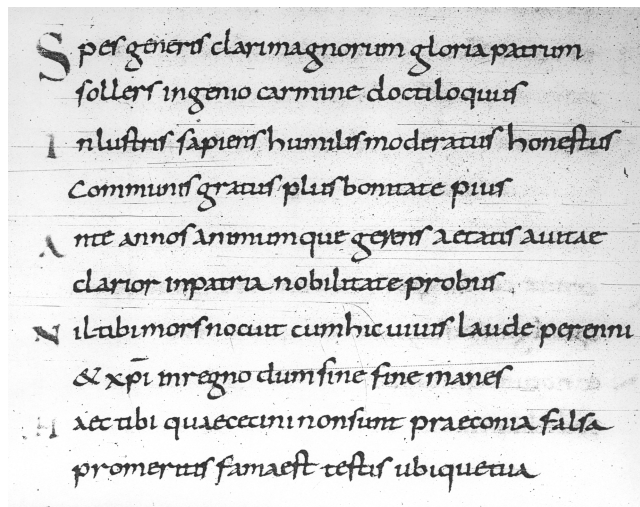 Spes generis clari magnorum gloria patrum
sollers ingenio carmine doctiloquus
Inlustris sapiens humilis moderatus honestus
Communis gratus plus bonitate pius
Ante annos animumque gerens aetatis avitae
clarior in patria nobilitate probus
Nil tibi mors nocuit cum hic vivis laude perenni
& xp̄i in regno dum sine fine manes
Haec tibi quae cecini non sunt praeconia falsa
pro meritis fama est testis ubique tua